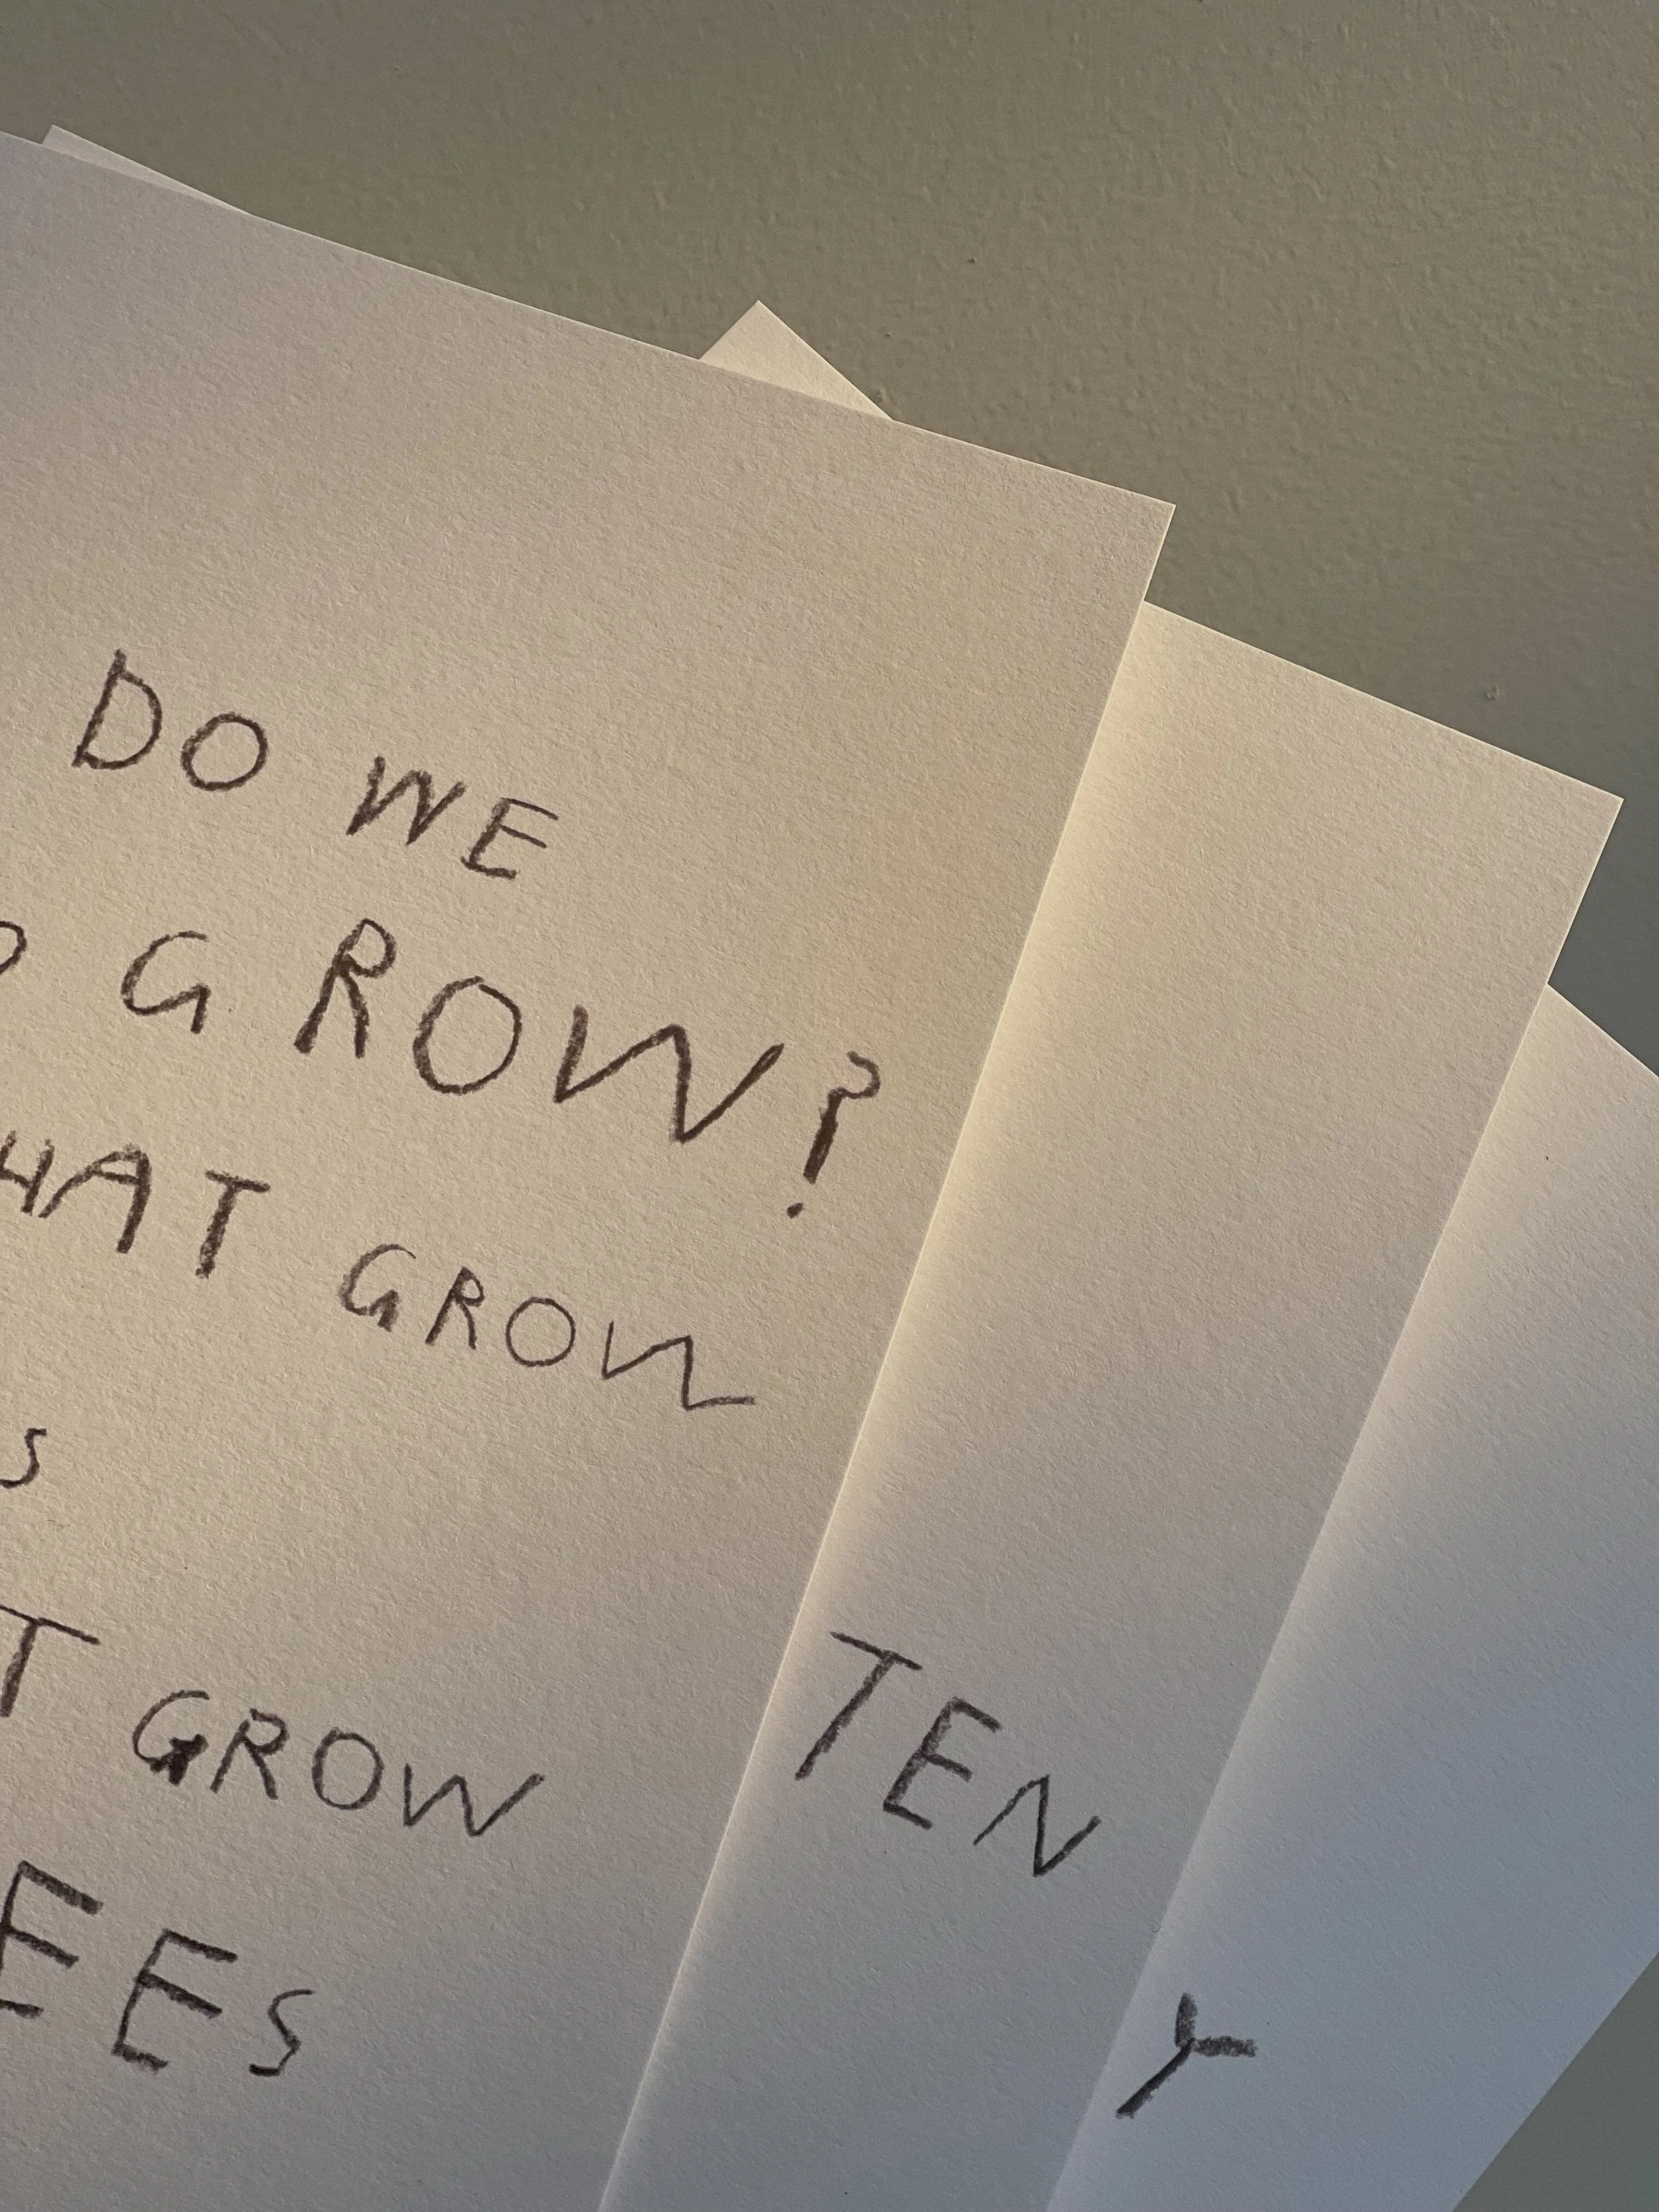 DO WE
GROW?
HAT GROW
S
T GROW
EES
TEN
Y